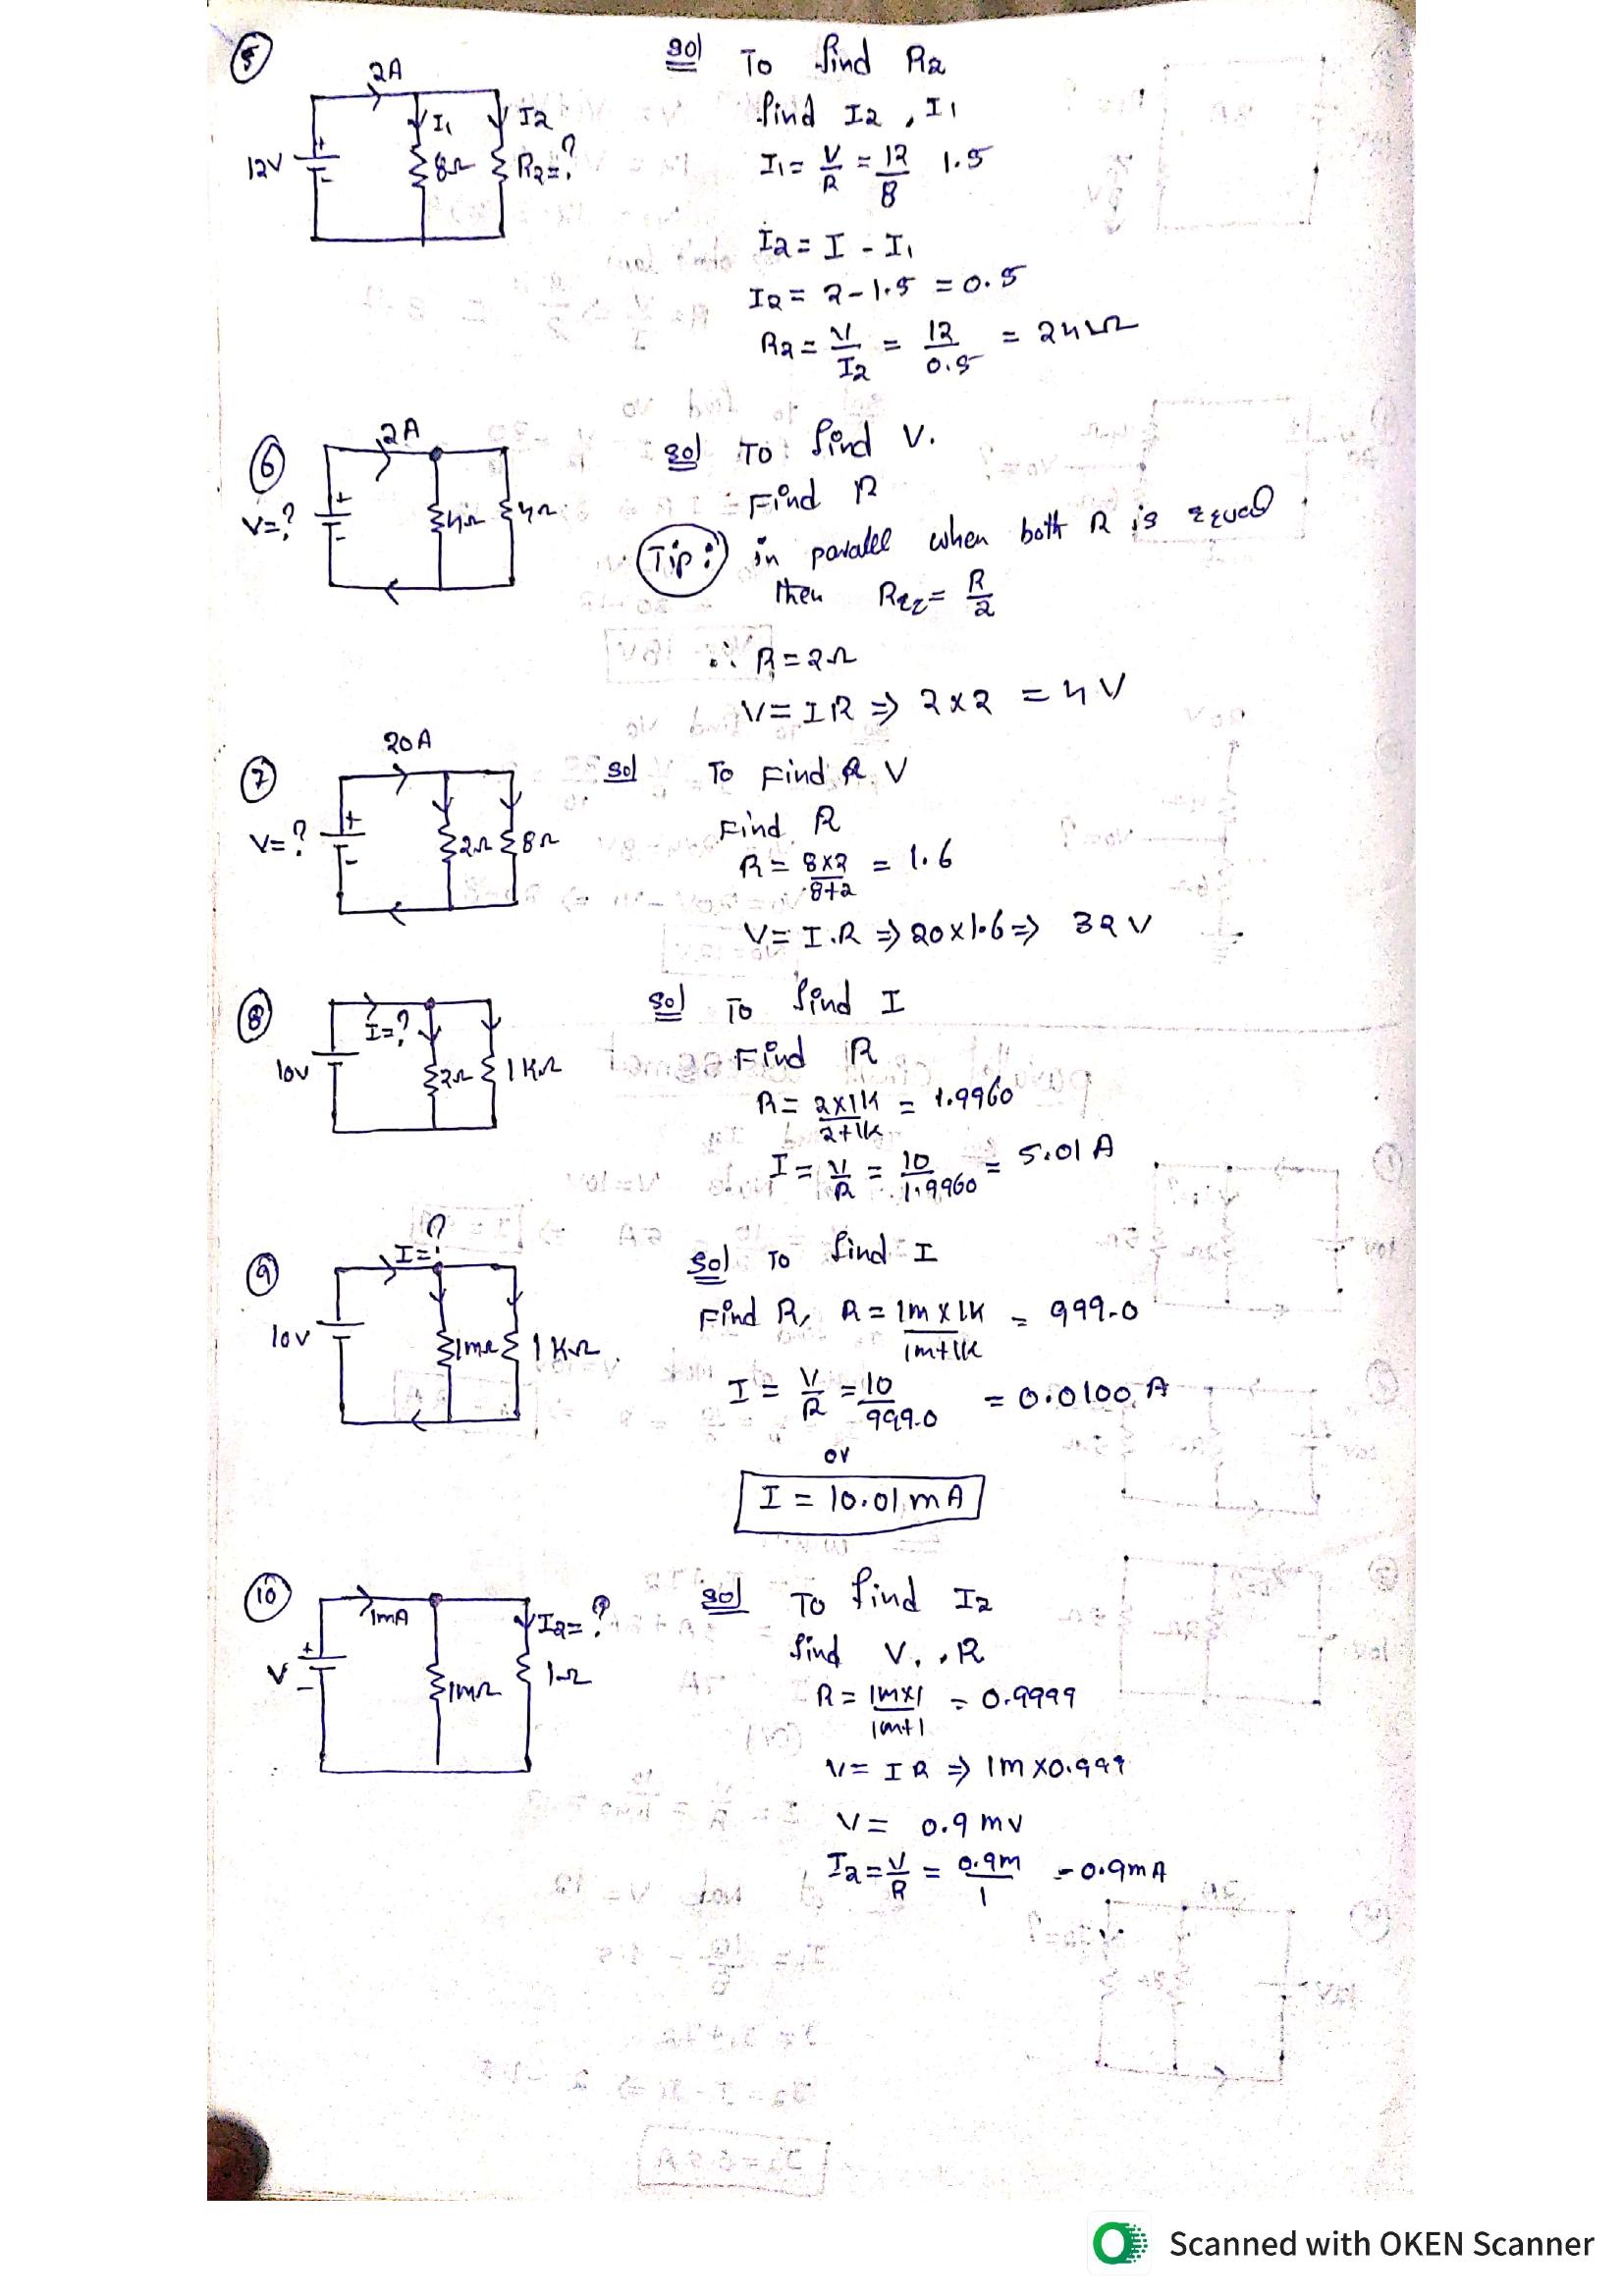 5
2A
I1
I2
12V
+
-
8Ω
R2=?
Sol To find R2
find I2 , I1
I1 = V/R = 12/8 1.5
I2 = I - I1
I2 = 2-1.5 = 0.5
R2 = V/I2 = 12/0.5 = 24Ω
6
2A
V=?
+
-
4Ω
4Ω
Sol To find V.
Find R
Tip: in paralel when both R is equal
then Req = R/2
∴ R=2Ω
V= IR ⇒ 2x2 = 4V
7
20A
V=?
+
-
2Ω
8Ω
Sol To Find V
Find R
R = 8x2/8+2 = 1.6
V= I.R ⇒ 20x1.6 ⇒ 32V
8
I=?
10V
2Ω
1KΩ
Sol To find I
Find R
R= 2x1K/2+1K = 1.9960
I = V/R = 10/1.9960 = 5.01 A
9
I=?
10V
1mΩ
1KΩ
Sol To find I
Find R, R = 1m x 1K/1m+1K = 999.0
I = V/R = 10/999.0 = 0.0100 A
or
I = 10.01 mA
10
1mA
I2=?
V
+
-
1mΩ
1Ω
Sol To find I2
find V, R
R = 1mx1/1m+1 = 0.9999
V= IR ⇒ 1m x0.999
V= 0.9 mv
I2=V/R = 0.9m/1 = 0.9mA
Scanned with OKEN Scanner